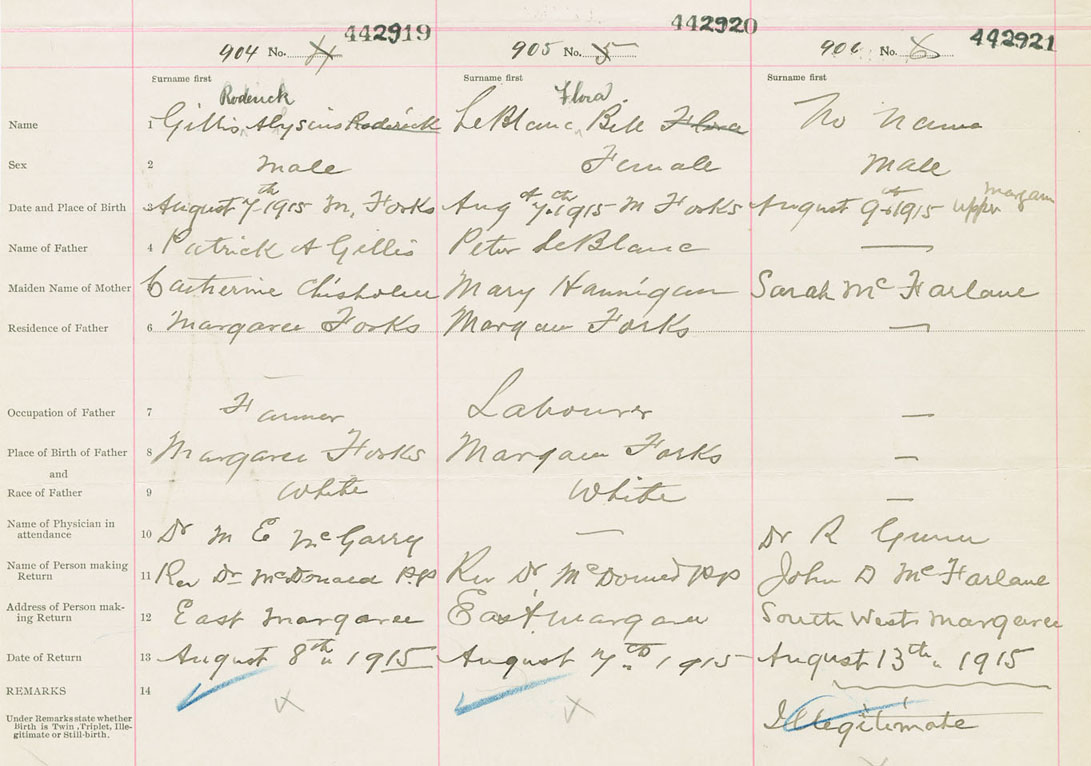 442919 442920 442921
904 No. 4 905 No. 5 906 No. 6
Surname first Surname first Surname first
Roderick Flora
Name 1 Gillis, Alysius Roderick LeBlanc, Bell Flora No Name
Sex 2 Male Female Male
Date and Place of Birth 3 August 7th 1915 M. Forks Aug 7th 1915 M Forks August 9th 1915 Upper Margaree
Name of Father 4 Patrick A Gillis Peter LeBlanc —
Maiden Name of Mother 5 Catherine Chisholm Mary Hannigan Sarah McFarlane
Residence of Father 6 Margaree Forks Margaree Forks —
Occupation of Father 7 Farmer Labourer —
Place of Birth of Father 8 Margaree Forks Margaree Forks —
and
Race of Father 9 White White —
Name of Physician in
attendance 10 Dr M E McGarry — Dr R Gunn
Name of Person making
Return 11 Rev Dr McDonald P.P Rev Dr McDonald PP John D McFarlane
Address of Person mak-
ing Return 12 East Margaree East Margaree South West Margaree
Date of Return 13 August 8th 1915 August 7th 1915 August 13th 1915
REMARKS 14
Under Remarks state whether
Birth is Twin, Triplet, Ille-
gitimate or Still-birth. Illegitimate